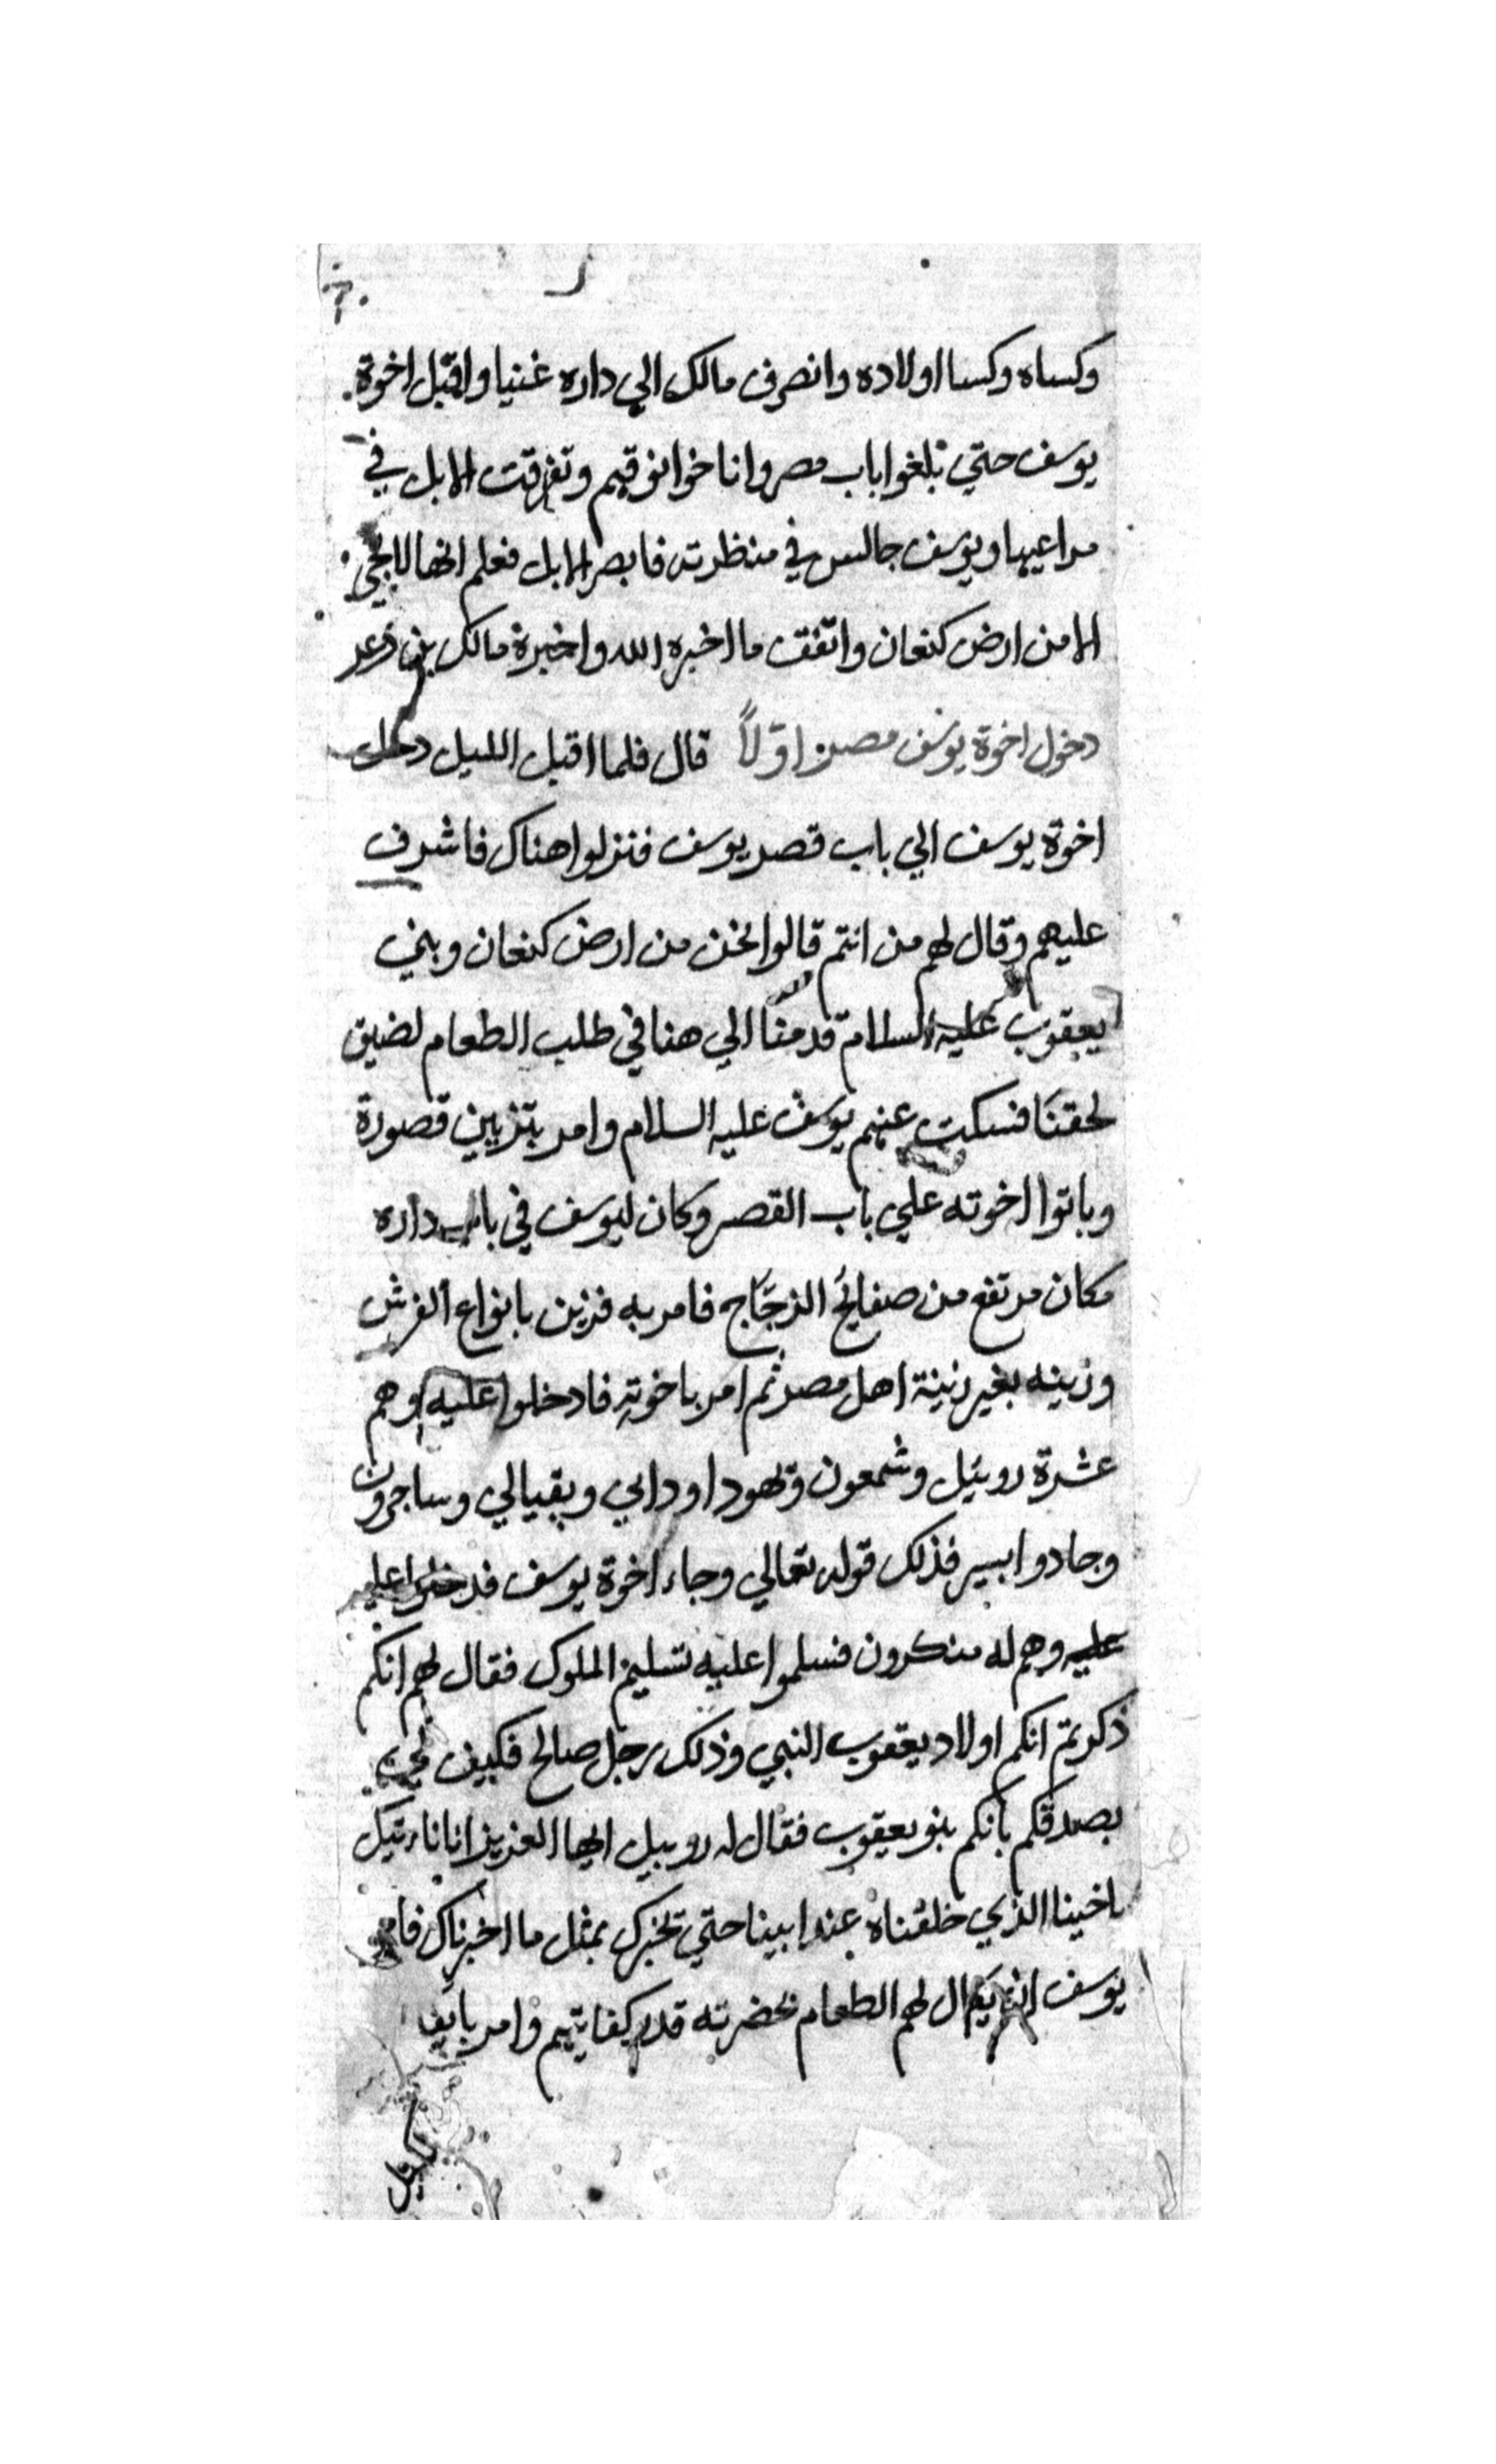 وكساه وكسا اولاده وانصرف مالك الي داره غنيا واقبل اخوة
يوسف حتي بلغوا باب مصر واناخوا نوقهم وتفرقت الابل في
مراعيها ويوسف جالس في منظرته فابصر الابل فعلم انها لا تجي
الا من ارض كنعان واتفقت ما اخبره الله واخبرة مالك بن دعر
دخول اخوة يوسف مصر اوّلاً قال فلما اقبل الليل دخل
اخوة يوسف الي باب قصر يوسف فنزلوا هناك فاشرف
عليهم وقال لهم من انتم قالوا نحن من ارض كنعان وبني
يعقوب عليه السلام قدمنا الي هنا في طلب الطعام لضيق
لحقنا فسكت عنهم يوسف عليه السلام وامر بتزيين قصورة
وباتوا اخوته علي باب القصر وكان ليوسف في باب داره
مكان مرتفع من صفايح الزجاج فامر به فزين بانواع الفرش
وزينه بغير زينة اهل مصر ثم امر باخوته فادخلوا عليه وهم
عشرة روبيل وشمعون ويهودا وداني ويقيالي وساجرون
وجادوا ابسير فذلك قوله تعالي وجاء اخوة يوسف فدخلوا عليه
عليه وهم له منكرون فسلموا عليه تسليم الملوك فقال لهم انكم
ذكرتم انكم اولاد يعقوب النبي وذلك رجل صالح فكيف لي
بصدقكم بانكم بنو يعقوب فقال له روبيل ايها العزيز انا ناتيك
باخينا الذي خلفناه عند ابينا حتي يخبرك بمثل ما اخبرناك فامر
يوسف ان يكال لهم الطعام بحضرته قدر كفايتهم وامر بان